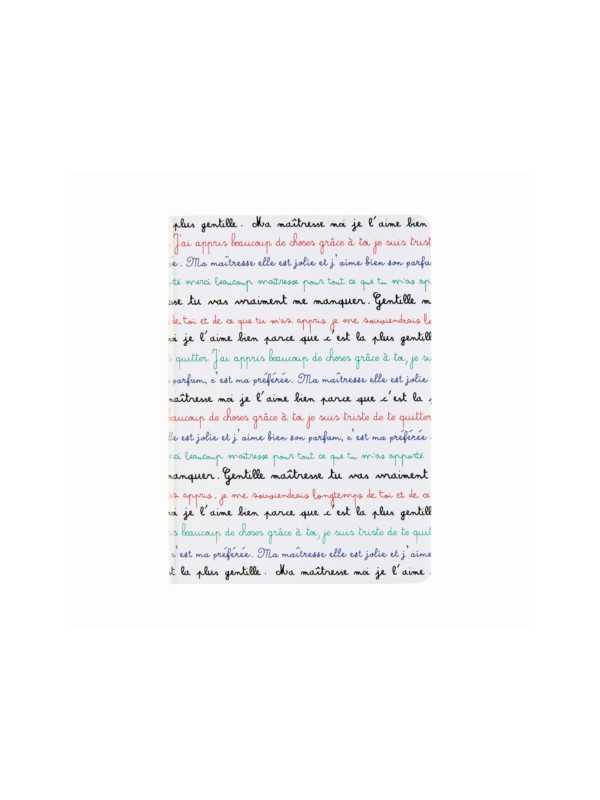 plus gentille. Ma maîtresse moi je l'aime bien
J'ai appris beaucoup de choses grâce à toi je suis trist
e. Ma maîtresse elle est jolie et j'aime bien son parfum
té merci beaucoup maîtresse pour tout ce que tu m'as ap
sse tu vas vraiment me manquer. Gentille m
de toi et de ce que tu m'as appris, je me souviendrais lo
oi je l'aime bien parce que c'est la plus gentill
quitter. J'ai appris beaucoup de choses grâce à toi, je su
parfum, c'est ma préférée. Ma maîtresse elle est jolie
maîtresse moi je l'aime bien parce que c'est la p
aucoup de choses grâce à toi je suis triste de te quitter
lle est jolie et j'aime bien son parfum, c'est ma préférée.
rci beaucoup maîtresse pour tout ce que tu m'as apporté
manquer. Gentille maîtresse tu vas vraiment
s appris, je me souviendrais longtemps de toi et de ce
oi je l'aime bien parce que c'est la plus gentill
s beaucoup de choses grâce à toi, je suis triste de te quit
c'est ma préférée. Ma maîtresse elle est jolie et j'aime
t la plus gentille. Ma maîtresse moi je l'aime